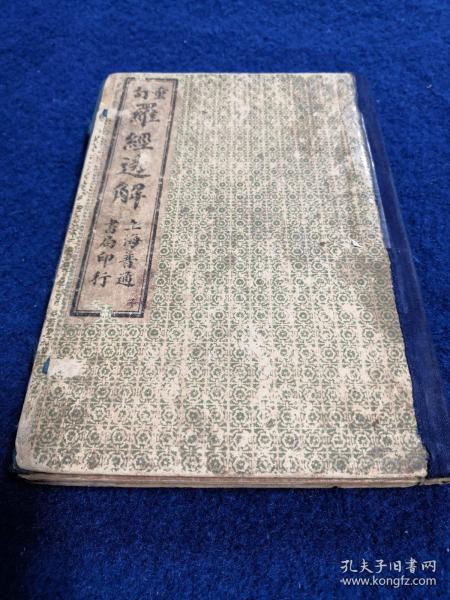 重訂
羅經透解
上海普通
書局印行
孔夫子旧书网
www.kongfz.com